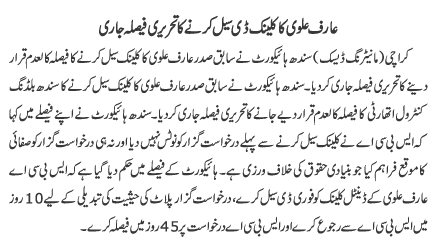 عارف علوی کا کلینک ڈی سیل کرنے کا تحریری فیصلہ جاری
کراچی (مانیٹرنگ ڈیسک) سندھ ہائیکورٹ نے سابق صدر عارف علوی کا کلینک سیل کرنے کا فیصلہ کالعدم قرار
دینے کا تحریری فیصلہ جاری کر دیا۔ سندھ ہائیکورٹ نے سابق صدر عارف علوی کا کلینک سیل کرنے کا سندھ بلڈنگ
کنٹرول اتھارٹی کا فیصلہ کالعدم قرار دیے جانے کا تحریری فیصلہ جاری کر دیا۔ سندھ ہائیکورٹ نے اپنے فیصلے میں کہا
کہ ایس بی سی اے نے کلینک سیل کرنے سے پہلے درخواست گزار کو نوٹس نہیں دیا اور نہ ہی درخواست گزار کو صفائی
کا موقع فراہم کیا جو بنیادی حقوق کی خلاف ورزی ہے۔ ہائیکورٹ کے فیصلے میں حکم دیا گیا ہے کہ ایس بی سی اے
عارف علوی کے ڈینٹل کلینک کو فوری ڈی سیل کرے، درخواست گزار پلاٹ کی حیثیت کی تبدیلی کے لیے 10 روز
میں ایس بی سی اے سے رجوع کرے اور ایس بی سی اے درخواست پر 45 روز میں فیصلہ کرے۔